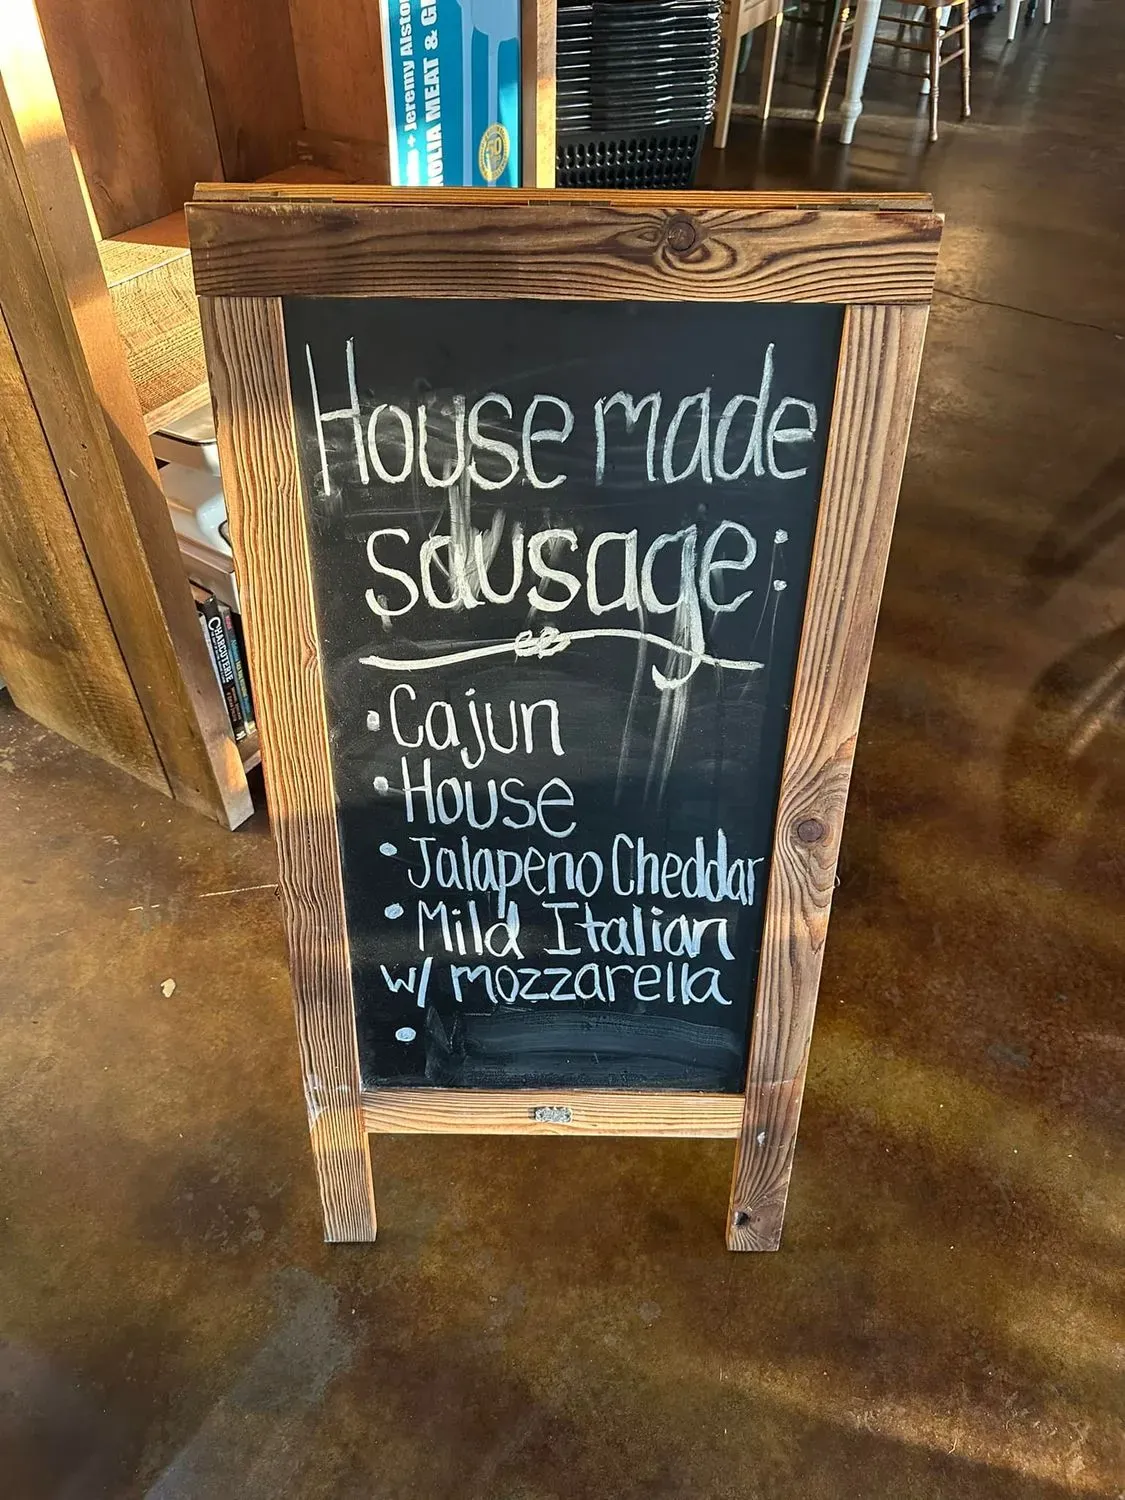 + Jeremy Alsto
OLIA MEAT & G
House made
sausage:
• Cajun
• House
• Jalapeno Cheddar
• Mild Italian
w/ mozzarella
•
CHARCUTERIE